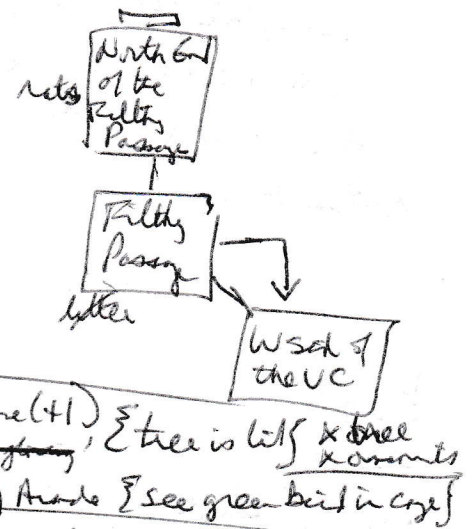 North End
of the
Filthy
Passage
rats
Filthy
Passage
litter
W Side of
the UC
(+1) {tree is lit} x tree
x ornaments
Arcade {see green bird in cage}